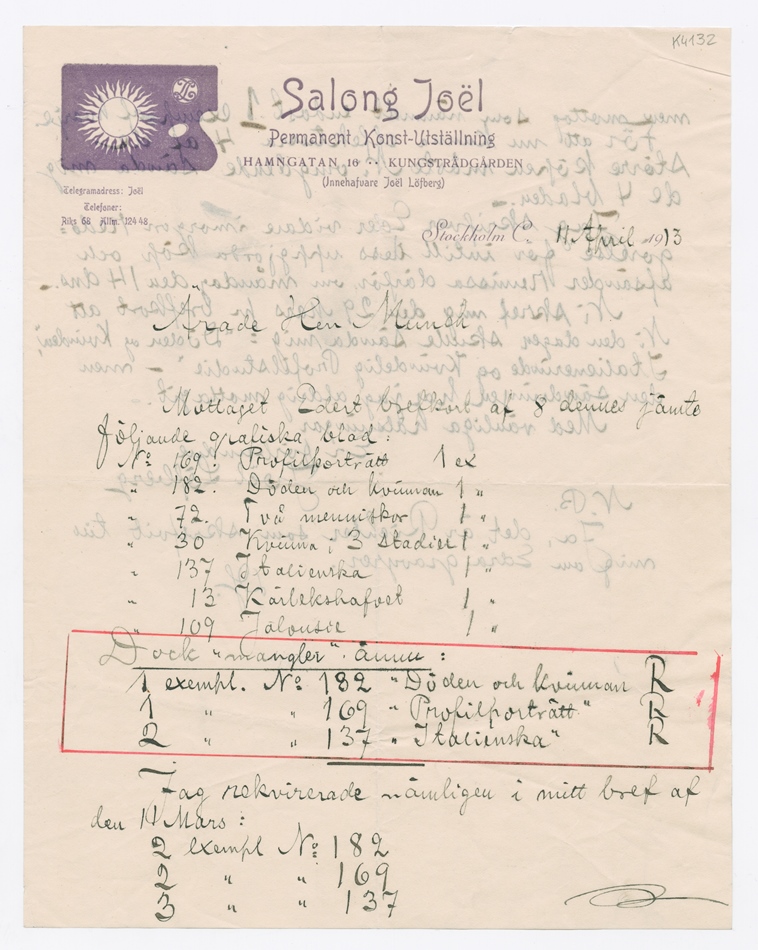 K4132
Salong Joël
Permanent Konst-Utställning
HAMNGATAN 16 · · KUNGSTRÄDGÅRDEN
(Innehafvare Joël Löfberg)
Telegramadress: Joël
Telefoner:
Riks 68 Allm. 124 48.
Stockholm C. 11 April 1913
Ärade Herr Munch
Mottaget Edert brefkort af 8 dennes jämte
följande grafiska blad:
No 169. Profilporträtt 1 ex
" 182. Döden och kvinnan 1 "
" 72. Två menniskor 1 "
" 30 Kvinna i 3 stadier 1 "
" 137 Italienska 1 "
" 13 Kärlekshafvet 1 "
" 109 Jalousie 1 "
Dock "mangler" ännu:
1 exempl. No 182 "Döden och kvinnan R
1 " " 169 "Profilporträtt" R
2 " " 137 "Italienska" R
Jag rekvirerade nämligen i mitt bref af
den 14 Mars:
2 exempl No 182
2 " " 169
3 " " 137